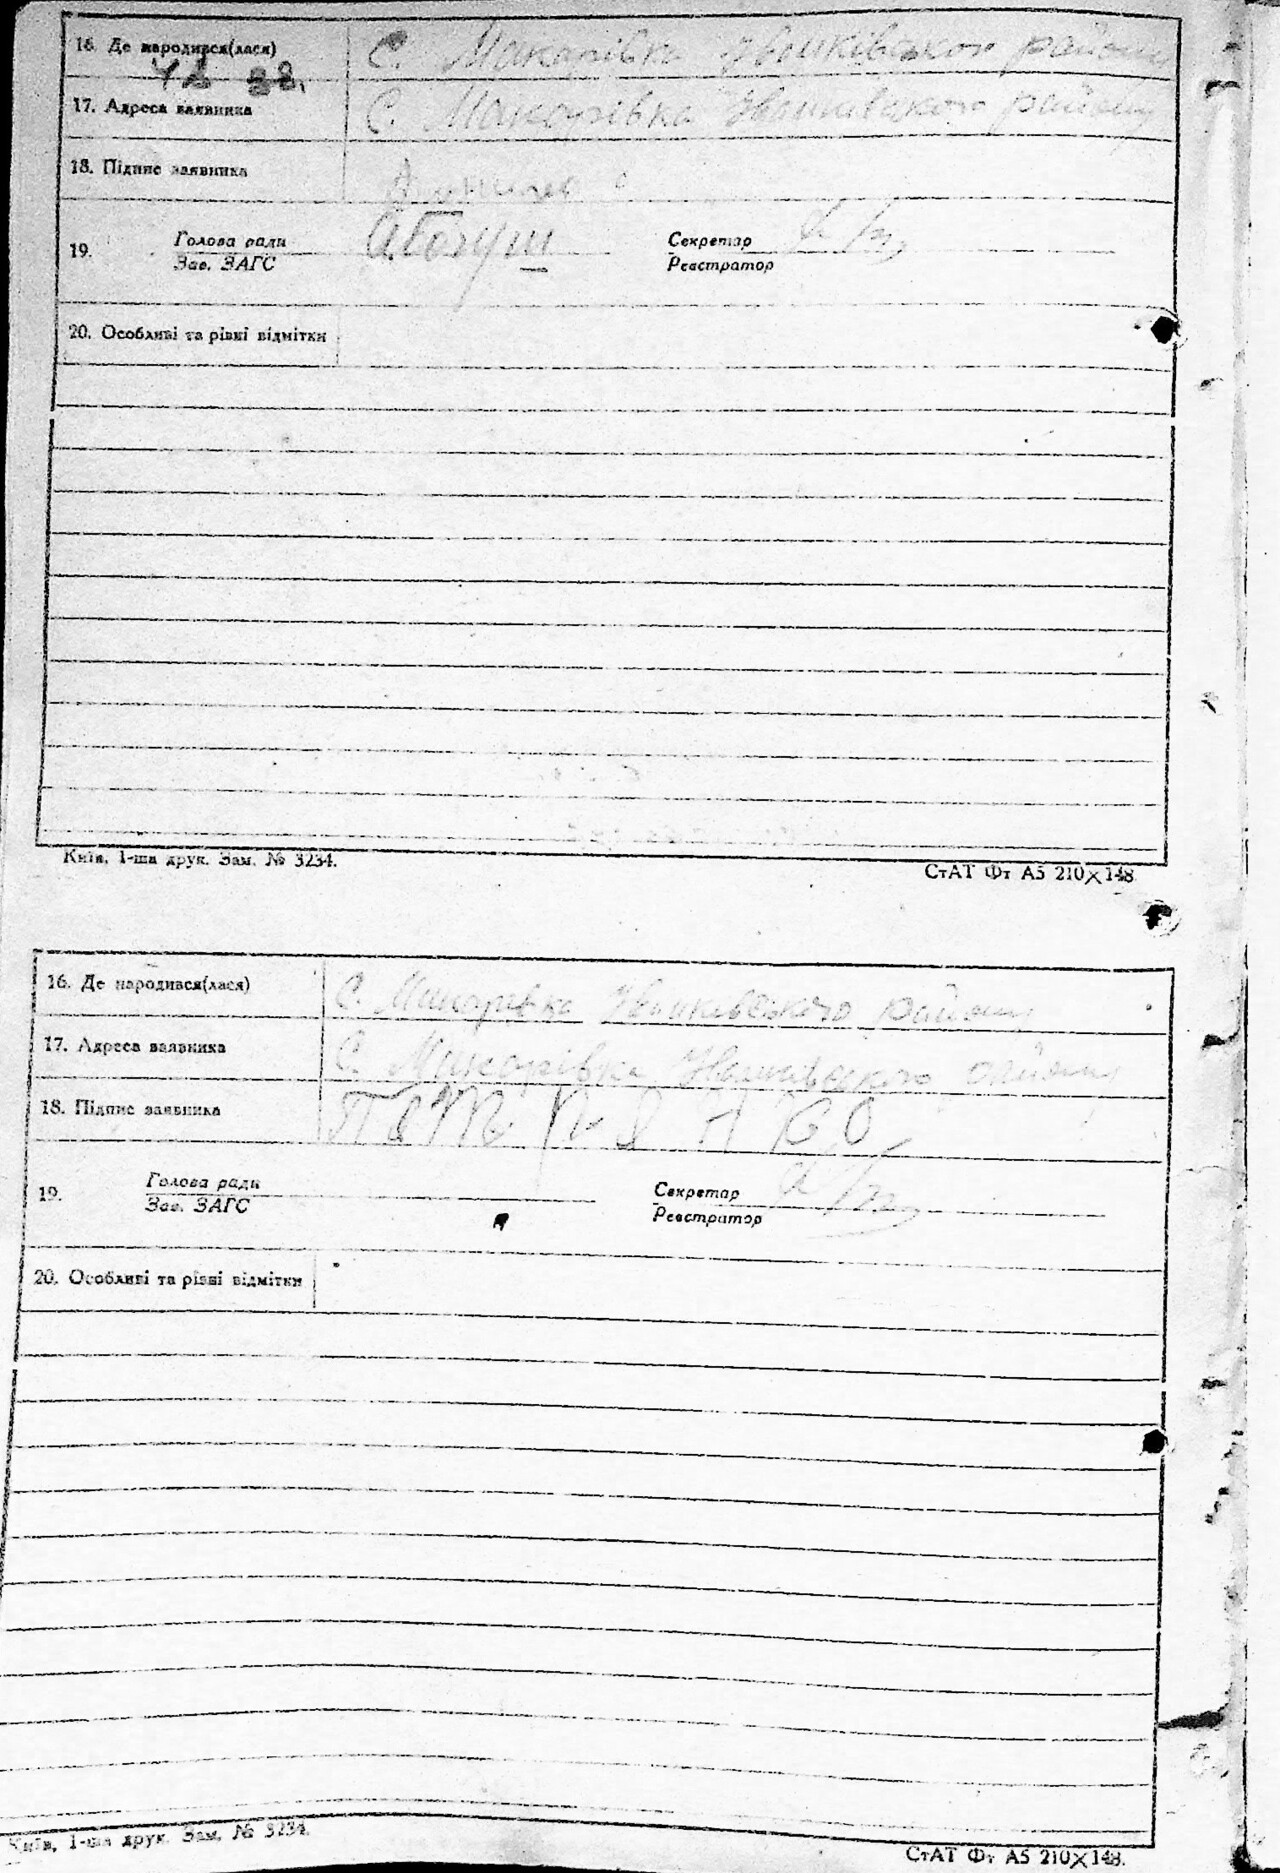 16. Де народився(лася) С. Макарівка Івонківського району
17. Адреса заявника С. Макарівка Іванківського району
18. Підпис заявника
19. Голова ради А.Богуш Секретар
Зав. ЗАГС Реєстратор
20. Особливі та різні відмітки
Київ, 1-ша друк. Зам. № 3234.
СтАТ Фт А5 210×148
16. Де народився(лася) С. Макарівка Іванківського району
17. Адреса заявника С. Макарівка Іванківського району
18. Підпис заявника
19. Голова ради Секретар
Зав. ЗАГС Реєстратор
20. Особливі та різні відмітки
Київ, 1-ша друк. Зам. № 3234.
СтАТ Фт А5 210×148.